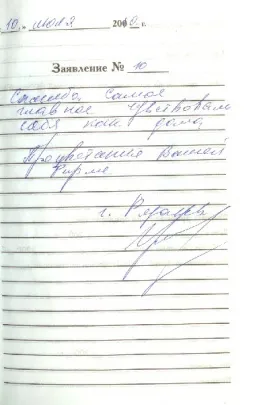 „10„ июля 2010 г.
Заявление № 10
Спасибо, Самое
главное чувствовали
себя как дома,
Процветания Вашей
Фирме
г. Рязань